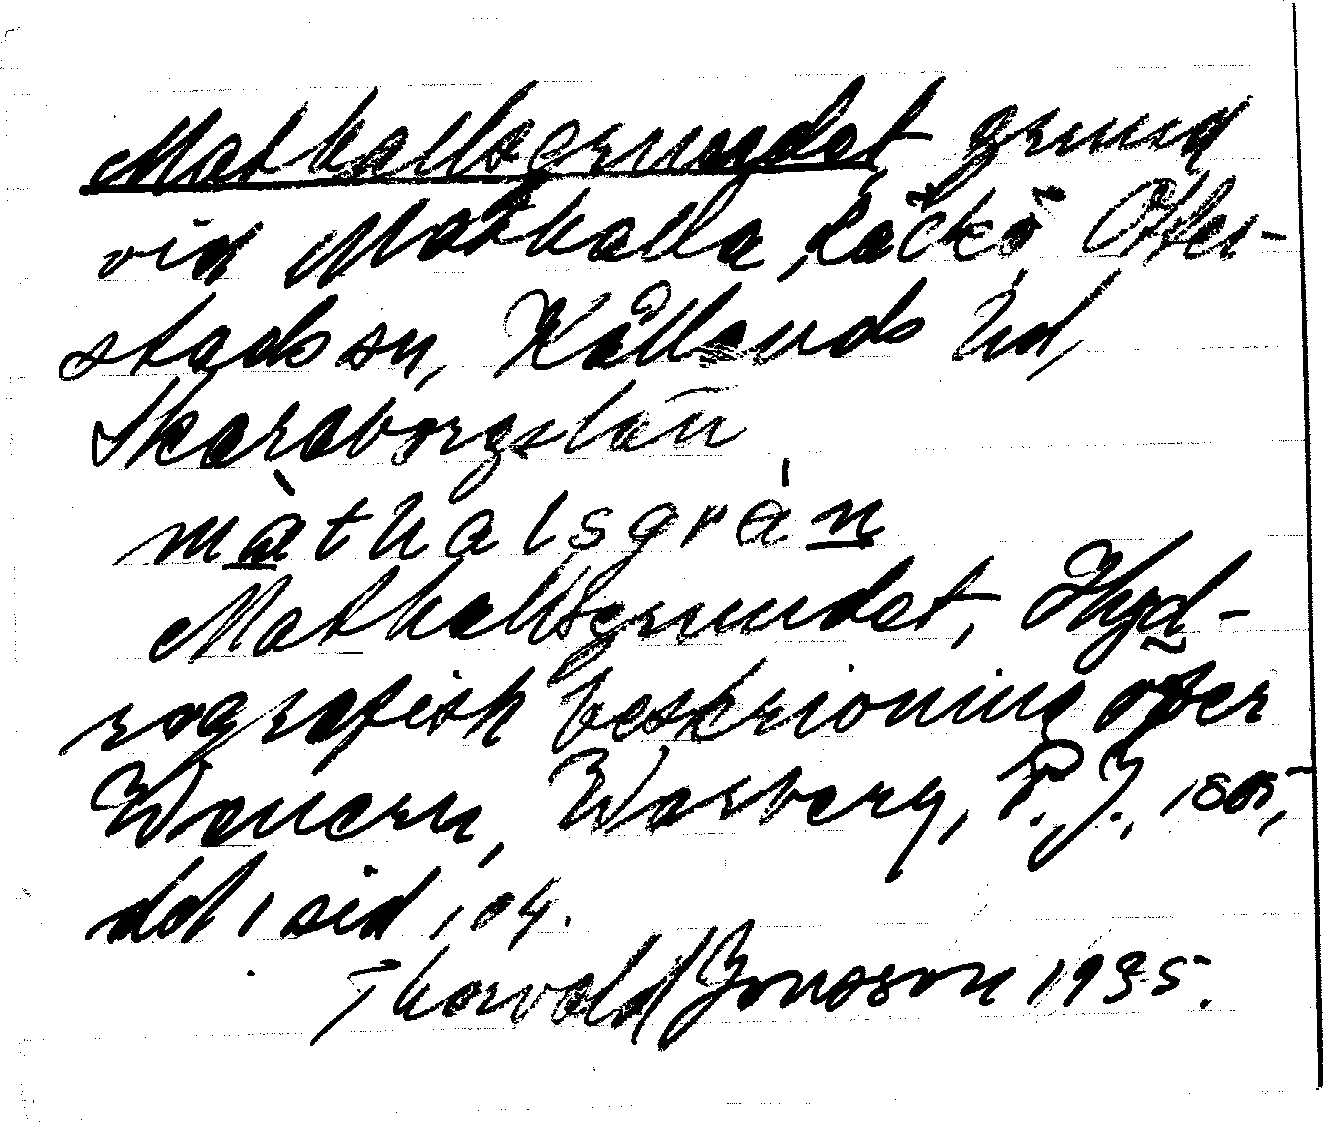 Mathallsgrundet grund
vid Mathalla, Läckö, Otter-
stads sn, Kållands hd,
Skaraborgs län
màthalsgrán
Mathallsgrundet, Hyd-
rografisk beskrivning öfver
Wenern, Warberg, P. J.,
del 1 sid 104.
Thorvald Jonsson 1935.